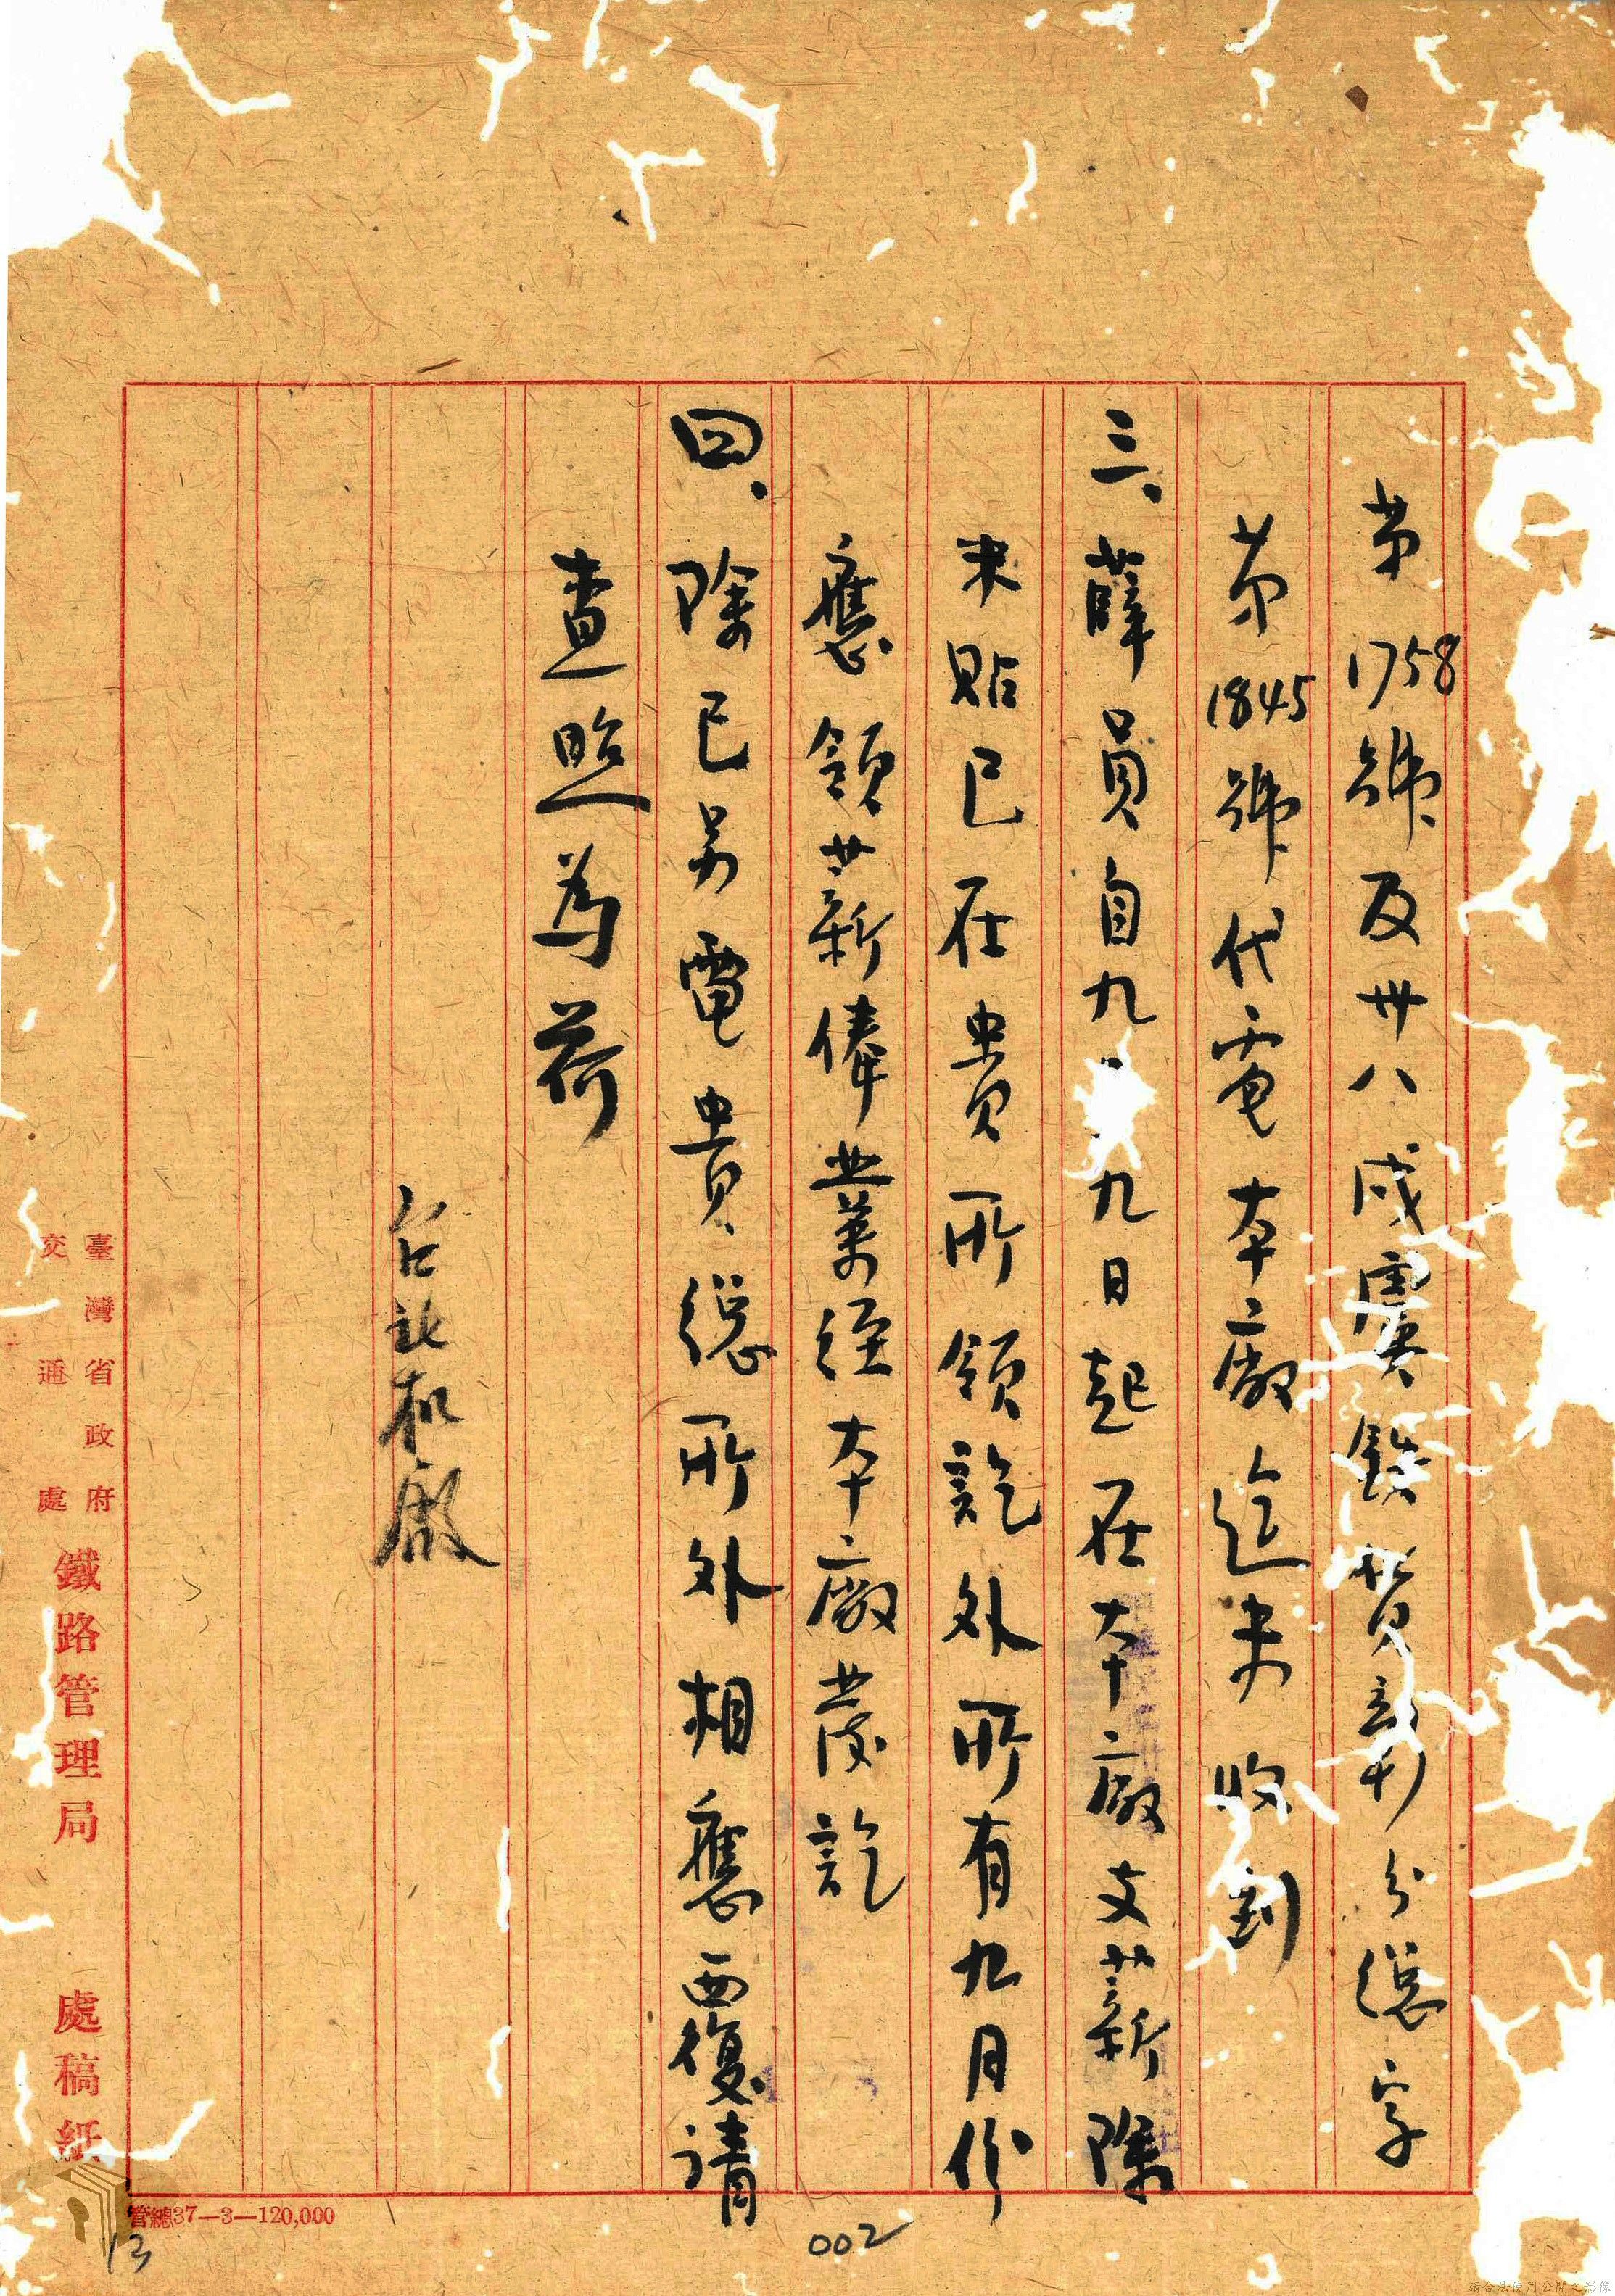 第1758號及卅八戌虞鐵貲彰分總字
第1845號代電本廠迄未收到
三、薛員自九、九日起在本廠支薪除
米貼已在貴所領訖外所有九月份
應領薪俸業經本廠發訖
四、除已另電貴總所外相應西復請
查照為荷
台北机廠
臺灣省政府
交通處
鐵路管理局 處稿紙
管總37—3—120,000
13
002
請合法使用公開之影像